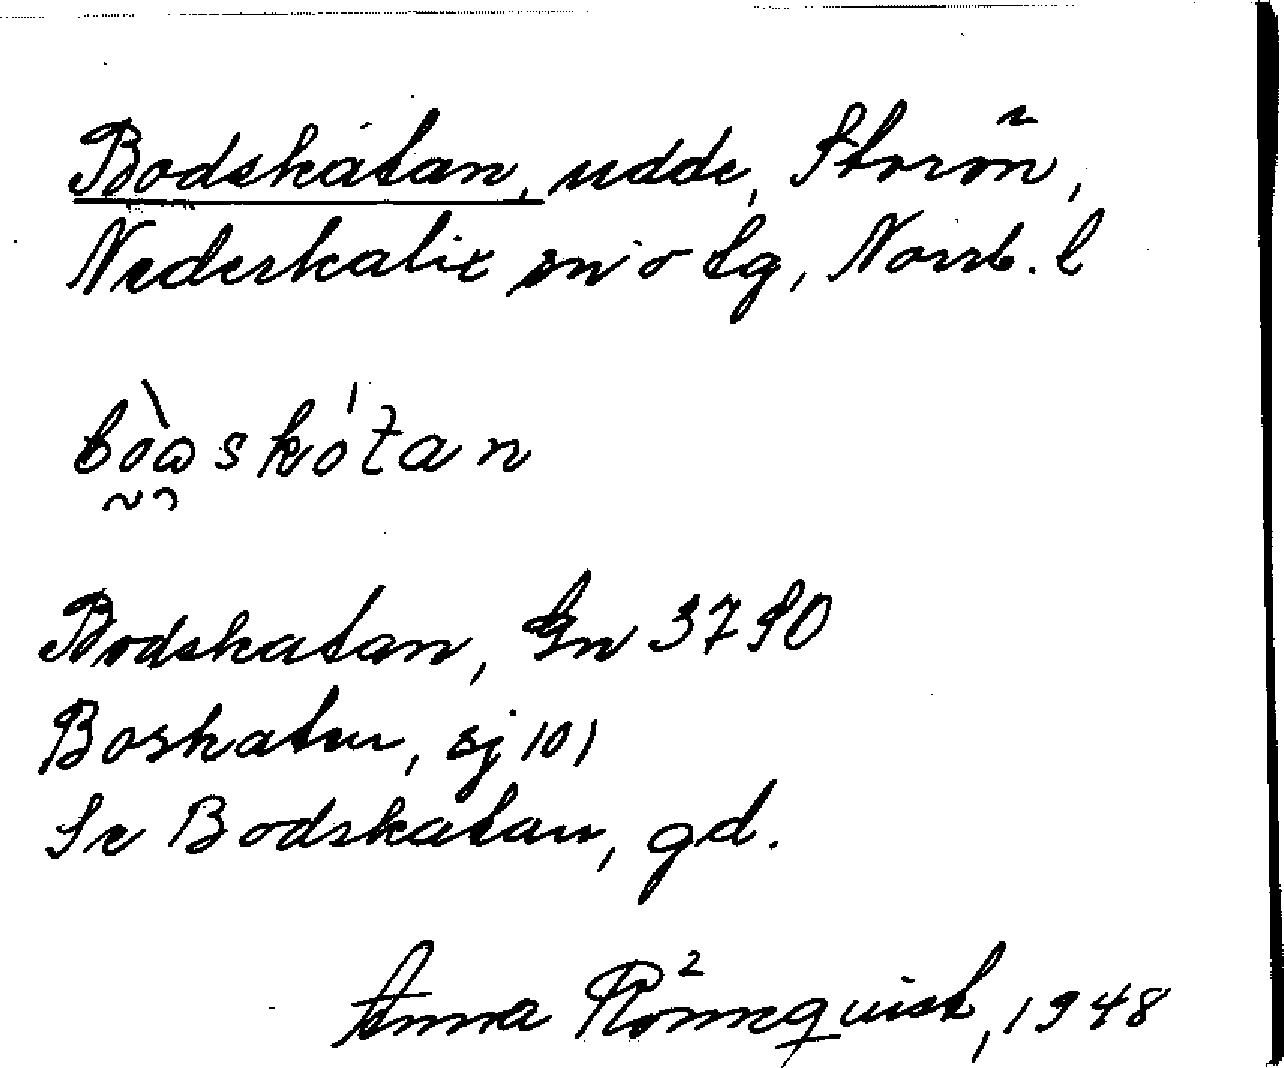 Bodskatan, udde, Storön,
Nederkalix sn o tg, Norrb. l
Bodskatan, Gn 3790
Boskatan, sj 101
Se Bodskatan, gd.
Anna Rönnequist, 1948